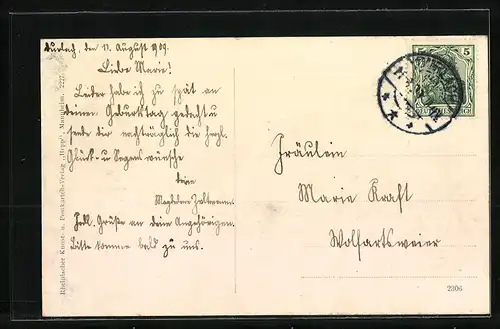 Durlach, den 11. August 909.
Liebe Marie!
Leider habe ich zu spät an
deinen Geburtstag gedacht u
sende dir nachträglich die herzl.
Glück- u. Segenswünsche
deine
Magdalena
Grüße an deine Angehörigen.
Bitte komme bald zu uns.
Fräulein
Marie Kraft
Wolfartsweier
Rheinischer Kunst- u. Postkarten-Verlag „Hepp“, Mannheim. 2227.
2306
5 5